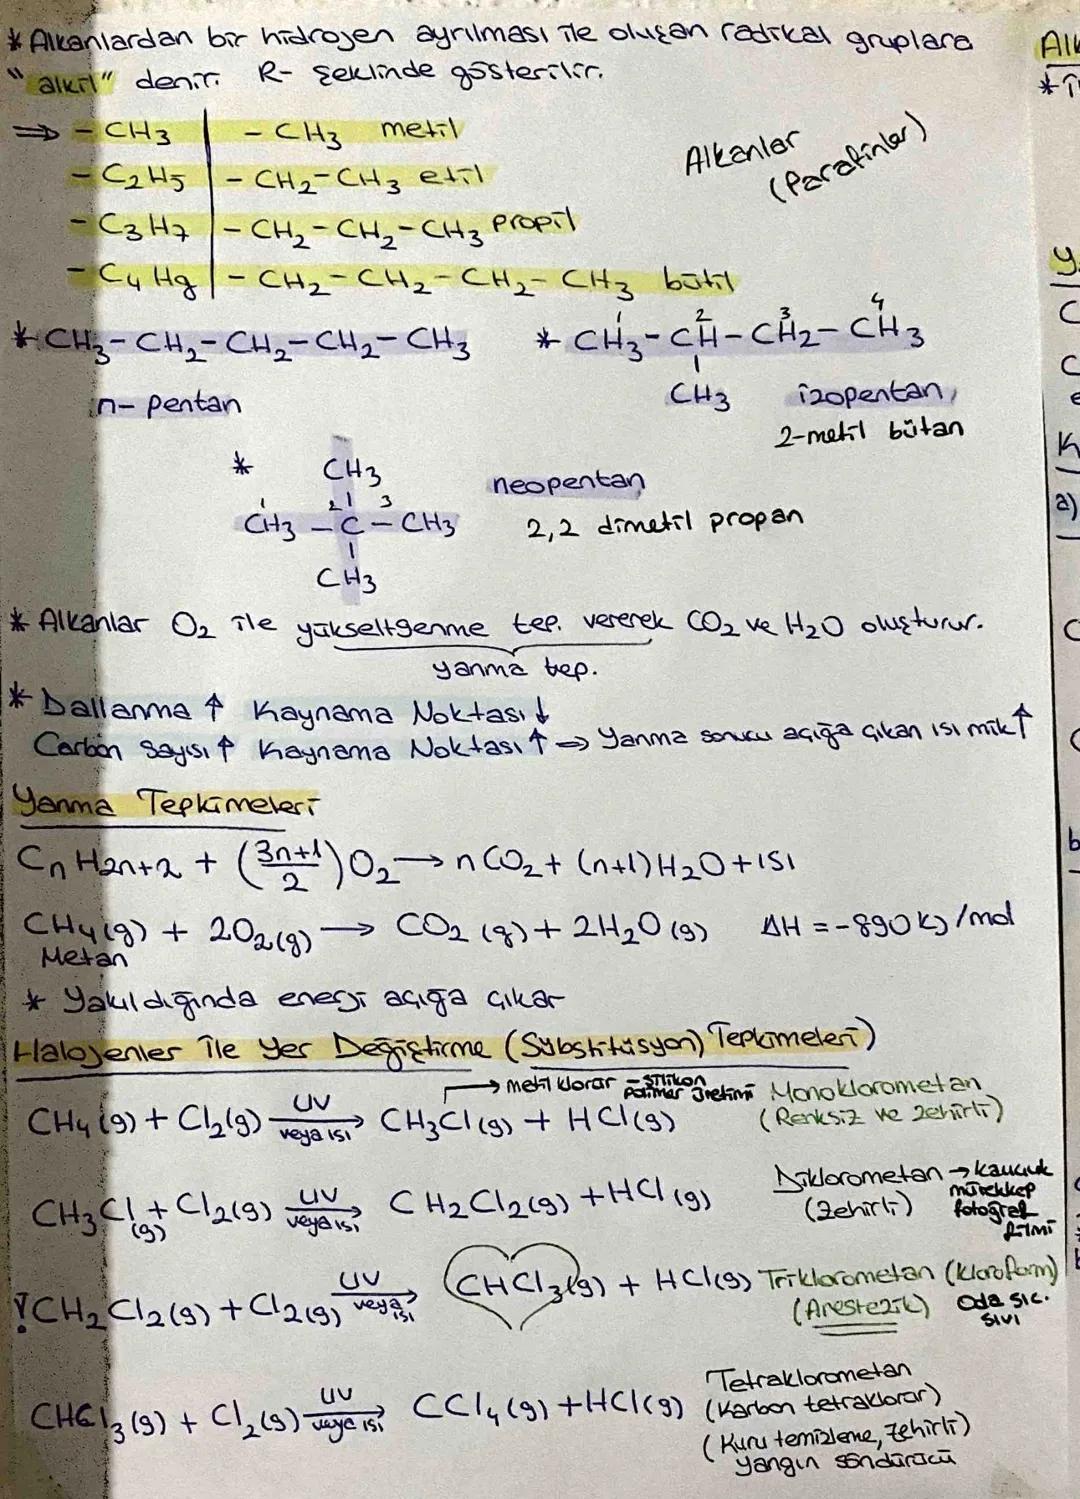 * Alkanlardan bir hidrojen ayrılması ile oluşan radikal gruplara
"alkil" denir. R- şeklinde gösterilir.
Alkanlar
(Parafinler)
⇒ - CH3 | - CH3 metil
- C2H5 | - CH2-CH3 etil
- C3H7 | - CH2-CH2-CH3 propil
- C4H9 | - CH2-CH2-CH2-CH3 bütil
* CH3-CH2-CH2-CH2-CH3
n- pentan
1 2 3 4
* CH3-CH-CH2-CH3
|
CH3
izopentan,
2-metil bütan
* CH3
1 2| 3
CH3 - C - CH3
|
CH3
neopentan
2,2 dimetil propan
* Alkanlar O2 ile yükseltgenme tep. vererek CO2 ve H2O oluşturur.
yanma tep.
* Dallanma ↑ Kaynama Noktası ↓
Carbon Sayısı ↑ Kaynama Noktası ↑ ⇒ Yanma sonucu açığa çıkan ısı mik ↑
Yanma Tepkimeleri
CnH2n+2 + (3n+1/2) O2 → nCO2 + (n+1)H2O + ISI
CH4(g) + 2O2(g) → CO2(g) + 2H2O(g) ΔH = -890 kj/mol
Metan
* Yakıldığında enerji açığa çıkar
Halojenler ile Yer Değiştirme (Sübstitüsyon) Tepkimeleri)
→ metil klorür - silikon
polimer üretimi
CH4(g) + Cl2(g) UV veya ısı → CH3Cl(g) + HCl(g)
Monoklorometan
(Renksiz ve zehirli)
CH3Cl(g) + Cl2(g) UV veya ısı → CH2Cl2(g) + HCl(g)
Diklorometan → kauçuk
(Zehirli) mürekkep
fotoğraf
filmi
! CH2Cl2(g) + Cl2(g) UV veya ısı → CHCl3(g) + HCl(g) Triklorometan (kloroform)
(Anestezik) Oda sıc.
sıvı
CHCl3(g) + Cl2(g) UV veya ısı → CCl4(g) + HCl(g)
Tetraklorometan
(Karbon tetraklorür)
(Kuru temizleme, zehirli)
yangın söndürücü
Alk
a)